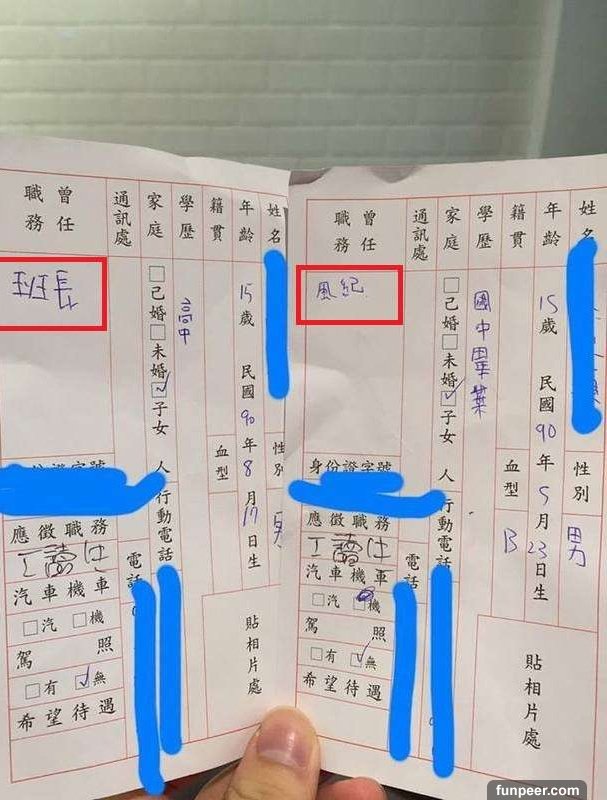 姓名
性別 男
年齡 15歲 民國90年5月23日生
籍貫
血型 B
學歷 國中畢業
家庭 □已婚□未婚☑子女 人
行動電話
通訊處
電話
曾任職務
風紀
身份證字號
應徵職務
工讀生
汽車機車
□汽 □機
駕照
□有 ☑無
希望待遇
貼相片處
姓名
性別 男
年齡 15歲 民國90年8月17日生
籍貫
血型
學歷 高中
家庭 □已婚□未婚☑子女 人
行動電話
通訊處
電話
曾任職務
班長
身份證字號
應徵職務
工讀生
汽車機車
□汽 □機
駕照
□有 ☑無
希望待遇
貼相片處
funpeer.com